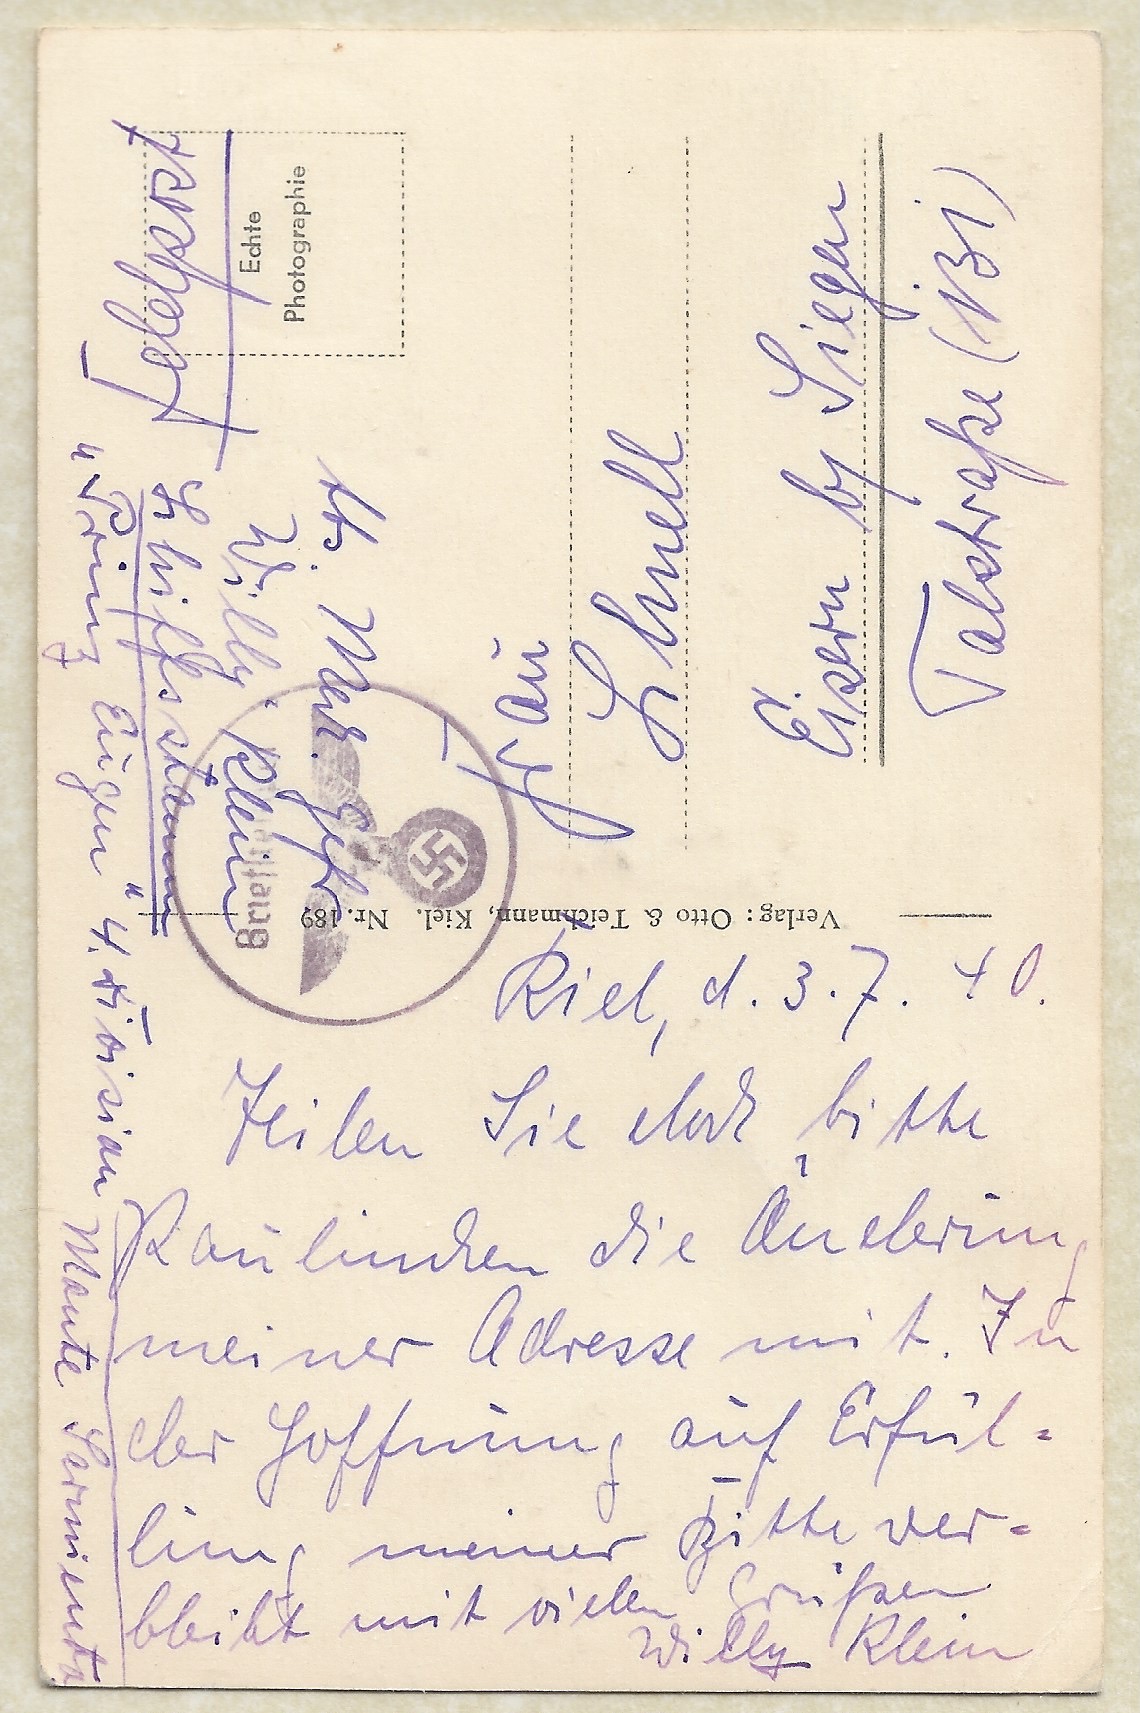 Feldpost
Echte
Photographie
Abs. Mtr. Gefr.
Willy Klein
Schiffsstamm
"Prinz Eugen" 4. Division
Frau
Schnell
Eisern by Siegen
Talstraße
Verlag: Otto & Teichmann, Kiel. Nr. 189
Kiel, d. 3.7.40.
Teilen Sie doch bitte
Paulinchen die Änderung
meiner Adresse mit. In
der Hoffnung auf Erfül-
lung meiner Bitte ver-
bleibt mit vielen Grüßen
Willy Klein